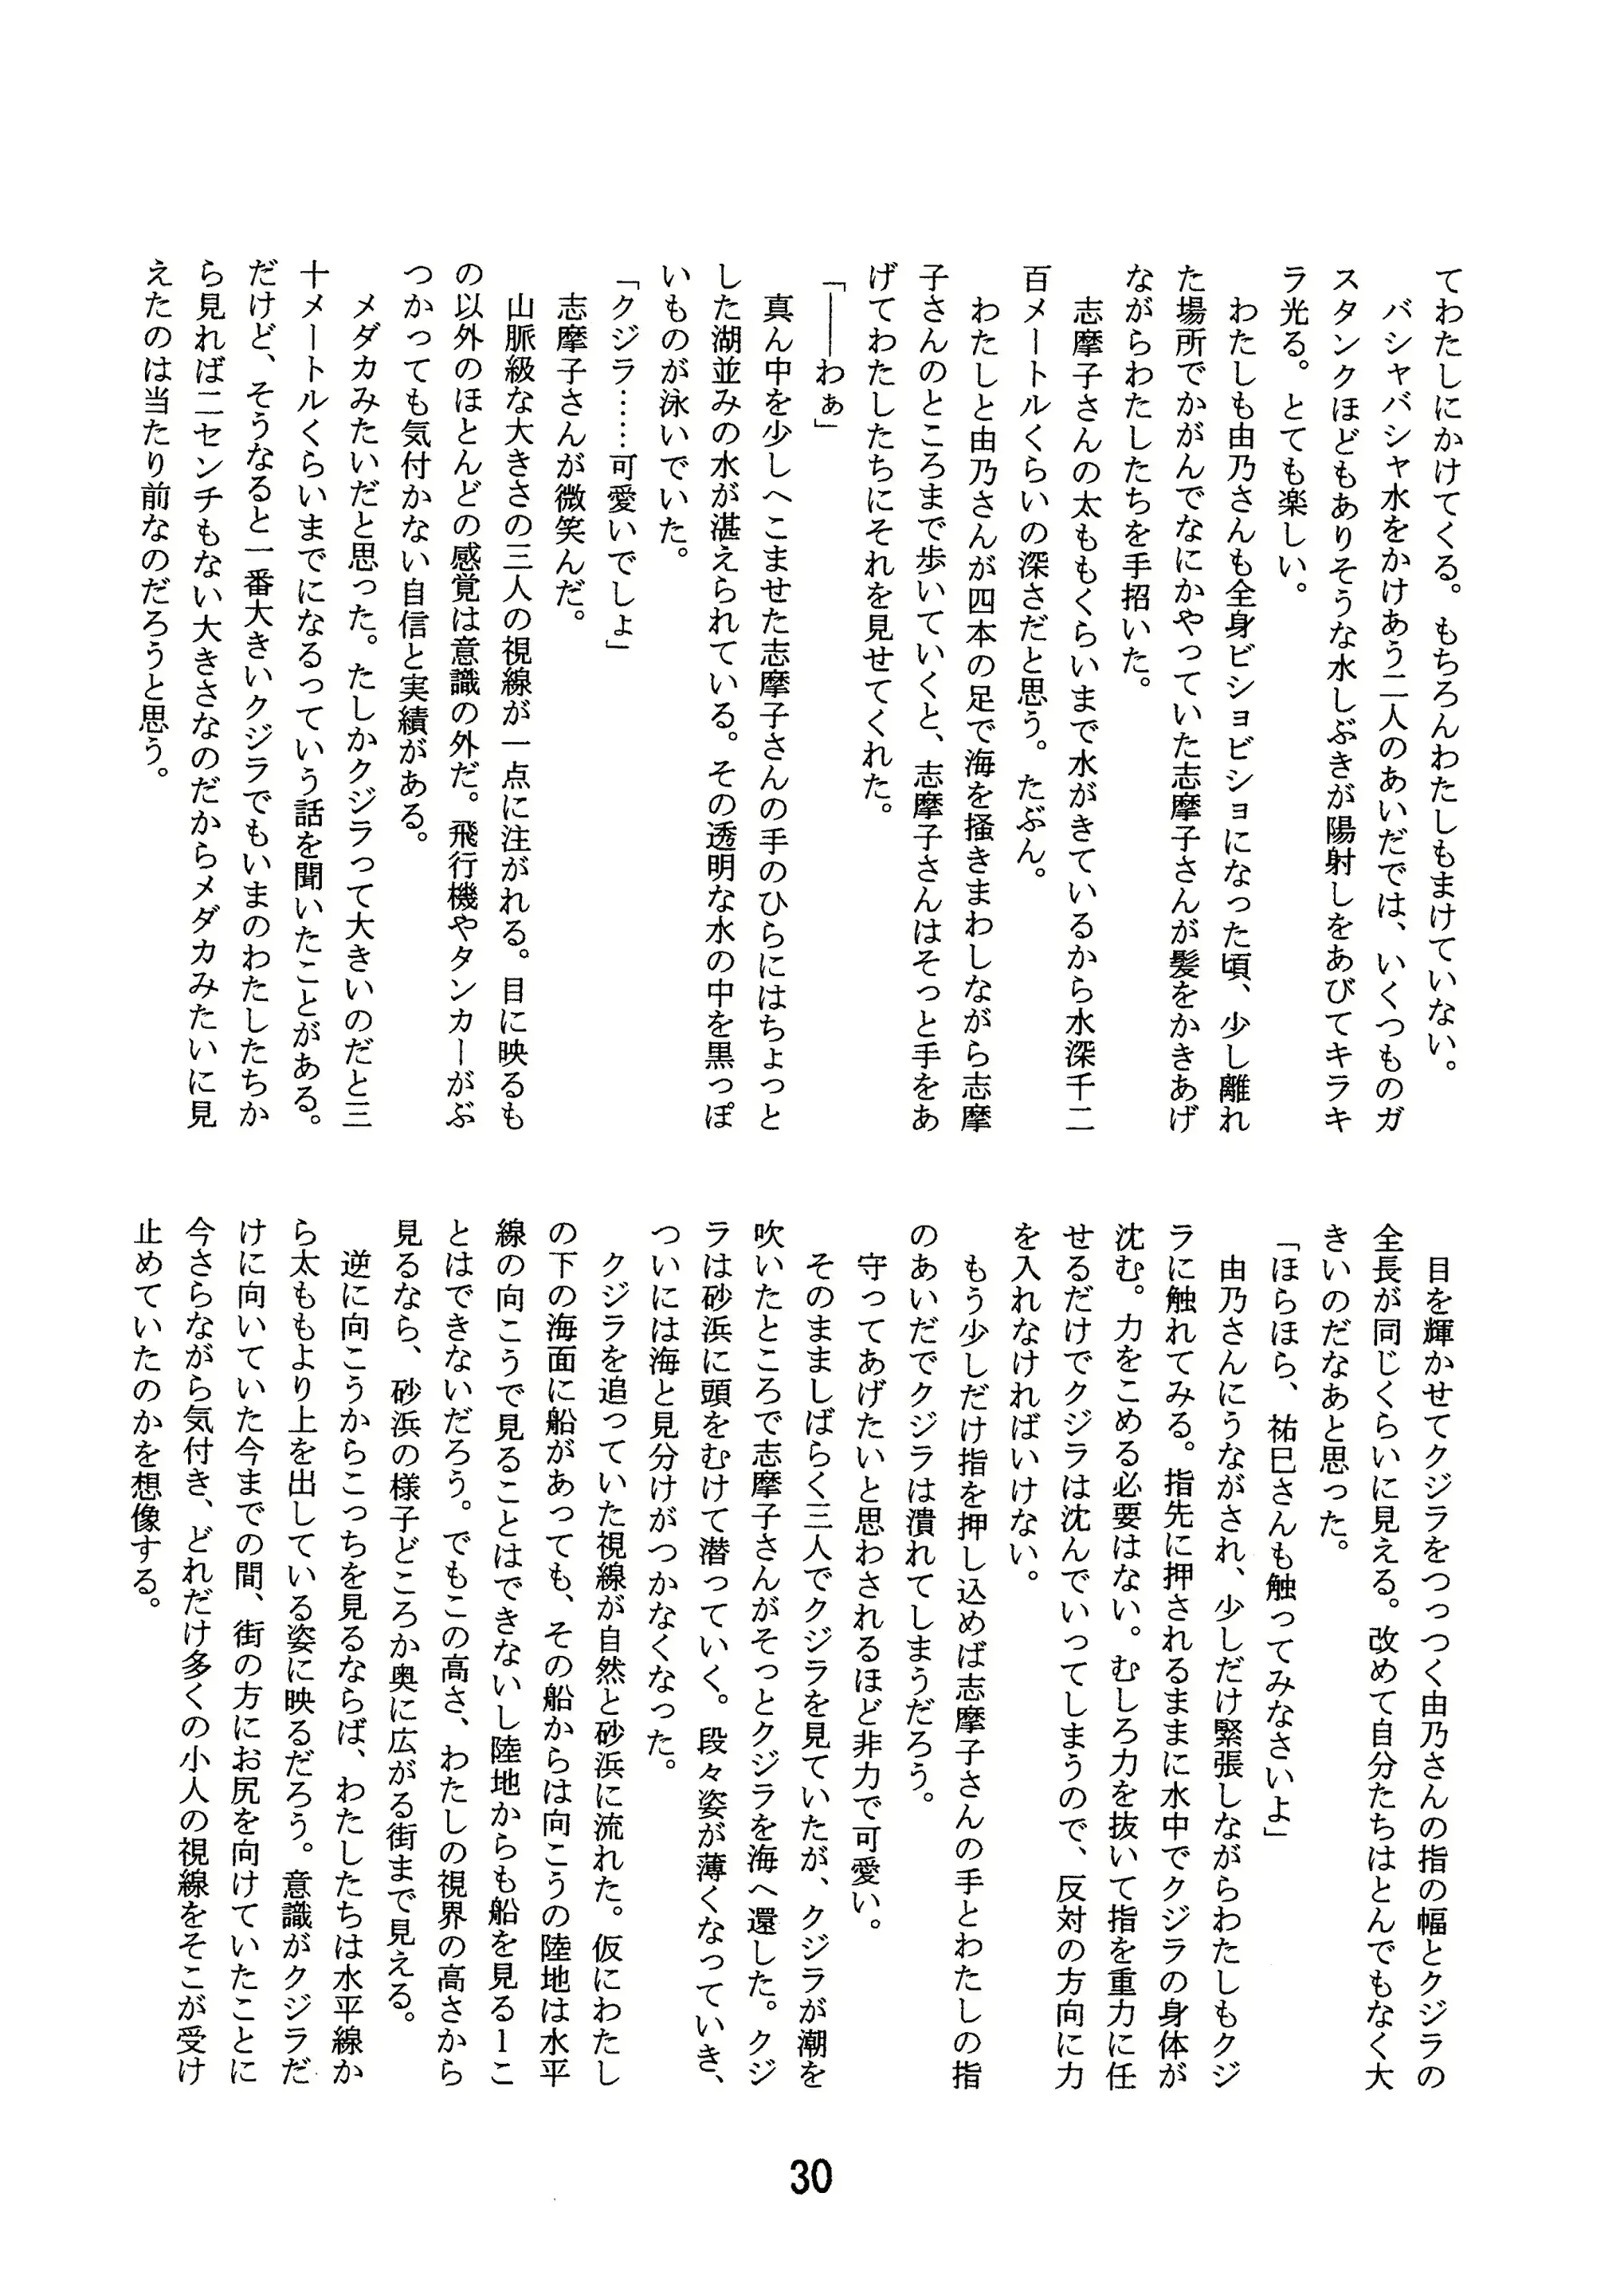 てわたしにかけてくる。もちろんわたしもまけていない。
　バシャバシャ水をかけあう二人のあいだでは、いくつものガ
スタンクほどもありそうな水しぶきが陽射しをあびてキラキ
ラ光る。とても楽しい。
　わたしも由乃さんも全身ビショビショになった頃、少し離れ
た場所でかがんでなにかやっていた志摩子さんが髪をかきあげ
ながらわたしたちを手招いた。
　志摩子さんの太ももくらいまで水がきているから水深千二
百メートルくらいの深さだと思う。たぶん。
　わたしと由乃さんが四本の足で海を掻きまわしながら志摩
子さんのところまで歩いていくと、志摩子さんはそっと手をあ
げてわたしたちにそれを見せてくれた。
「――わぁ」
　真ん中を少しへこませた志摩子さんの手のひらにはちょっと
した湖並みの水が湛えられている。その透明な水の中を黒っぽ
いものが泳いでいた。
「クジラ……可愛いでしょ」
　志摩子さんが微笑んだ。
　山脈級な大きさの三人の視線が一点に注がれる。目に映るも
の以外のほとんどの感覚は意識の外だ。飛行機やタンカーがぶ
つかっても気付かない自信と実績がある。
　メダカみたいだと思った。たしかクジラって大きいのだと三
十メートルくらいまでになるっていう話を聞いたことがある。
だけど、そうなると一番大きいクジラでもいまのわたしたちか
ら見れば二センチもない大きさなのだからメダカみたいに見
えたのは当たり前なのだろうと思う。
　目を輝かせてクジラをつっつく由乃さんの指の幅とクジラの
全長が同じくらいに見える。改めて自分たちはとんでもなく大
きいのだなあと思った。
「ほらほら、祐巳さんも触ってみなさいよ」
　由乃さんにうながされ、少しだけ緊張しながらわたしもクジ
ラに触れてみる。指先に押されるままに水中でクジラの身体が
沈む。力をこめる必要はない。むしろ力を抜いて指を重力に任
せるだけでクジラは沈んでいってしまうので、反対の方向に力
を入れなければいけない。
　もう少しだけ指を押し込めば志摩子さんの手とわたしの指
のあいだでクジラは潰れてしまうだろう。
　守ってあげたいと思わされるほど非力で可愛い。
　そのまましばらく三人でクジラを見ていたが、クジラが潮を
吹いたところで志摩子さんがそっとクジラを海へ還した。クジ
ラは砂浜に頭をむけて潜っていく。段々姿が薄くなっていき、
ついには海と見分けがつかなくなった。
　クジラを追っていた視線が自然と砂浜に流れた。仮にわたし
の下の海面に船があっても、その船からは向こうの陸地は水平
線の向こうで見ることはできないし陸地からも船を見る１こ
とはできないだろう。でもこの高さ、わたしの視界の高さから
見るなら、砂浜の様子どころか奥に広がる街まで見える。
　逆に向こうからこっちを見るならば、わたしたちは水平線か
ら太ももより上を出している姿に映るだろう。意識がクジラだ
けに向いていた今までの間、街の方にお尻を向けていたことに
今さらながら気付き、どれだけ多くの小人の視線をそこが受け
止めていたのかを想像する。
30